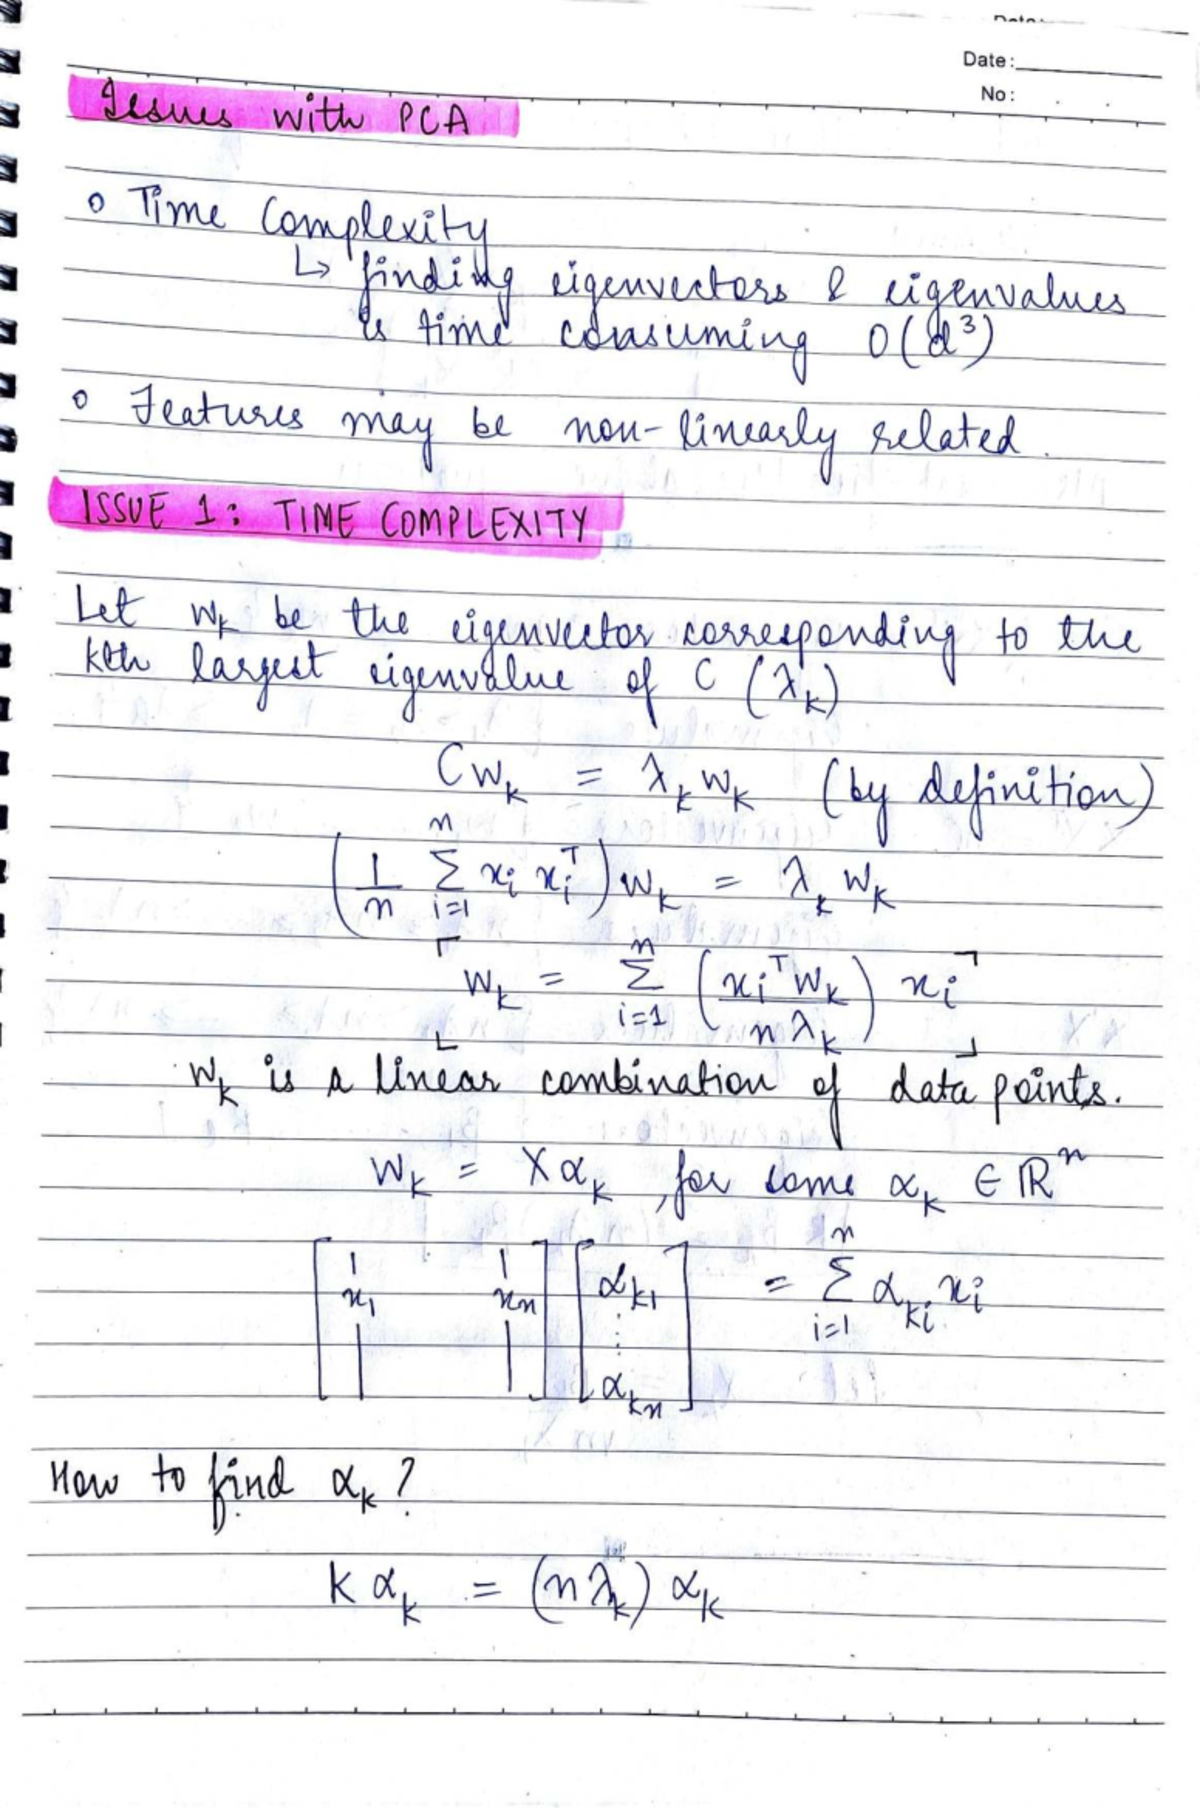 Date:
Date:
No:
Issues with PCA
o Time Complexity
↳ finding eigenvectors & eigenvalues
is time consuming O(d³)
o Features may be non-linearly related.
ISSUE 1: TIME COMPLEXITY
Let w_k be the eigenvector corresponding to the
kth largest eigenvalue of C (λ_k)
C w_k = λ_k w_k (by definition)
(1/n Σ_{i=1}^{n} x_i x_i^T) w_k = λ_k w_k
w_k = Σ_{i=1}^{n} (x_i^T w_k / n λ_k) x_i
w_k is a linear combination of data points.
w_k = X α_k, for some α_k ∈ ℝ^n
[ | | ] [ α_k1 ] = Σ_{i=1}^{n} α_ki x_i
[ x_1 x_n ] [ ⋮ ]
[ | | ] [ α_kn ]
How to find α_k?
K α_k = (n λ_k) α_k